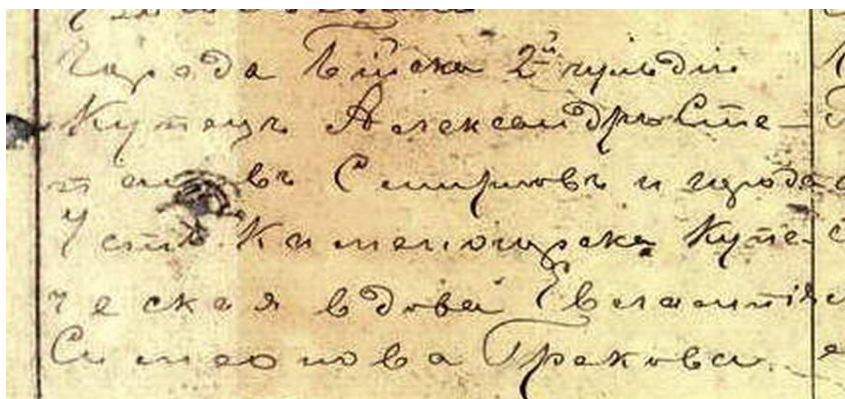 города Бійска 2й гильдіи
Купецъ Александръ Сте-
пановъ Смирновъ и города
Усть Каменогорска Купе-
ческая вдова Евлампія
Симеонова Грекова